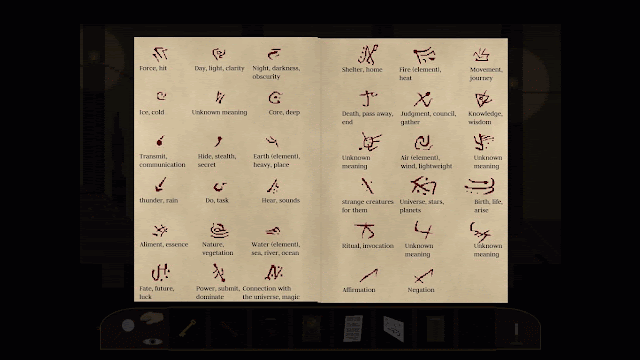 Force, hit
Day, light, clarity
Night, darkness,
obscurity
Ice, cold
Unknown meaning
Core, deep
Transmit,
communication
Hide, stealth,
secret
Earth (element),
heavy, place
thunder, rain
Do, task
Hear, sounds
Aliment, essence
Nature,
vegetation
Water (element),
sea, river, ocean
Fate, future,
luck
Power, submit,
dominate
Connection with
the universe, magic
Shelter, home
Fire (element),
heat
Movement,
journey
Death, pass away,
end
Judgment, council,
gather
Knowledge,
wisdom
Unknown
meaning
Air (element),
wind, lightweight
Unknown
meaning
strange creatures
for them
Universe, stars,
planets
Birth, life,
arise
Ritual, invocation
Unknown
meaning
Unknown
meaning
Affirmation
Negation